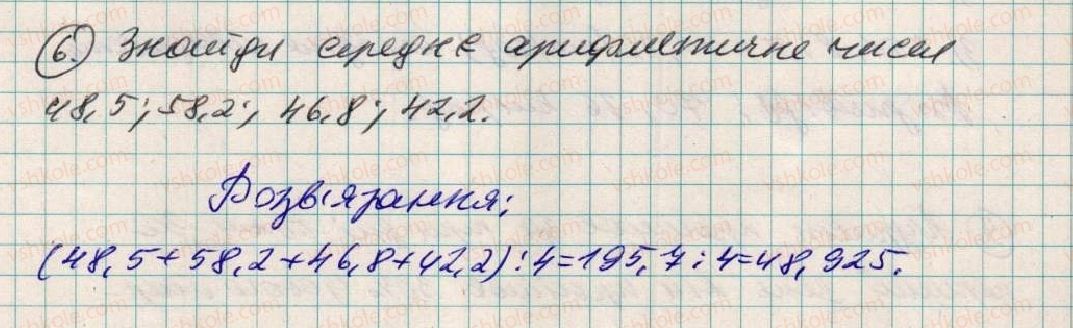 6. Знайди середнє арифметичне чисел
48,5; 58,2; 46,8; 42,2.
Розвязання:
(48,5+58,2+46,8+42,2):4=195,7:4=48,925.
vshkole.com